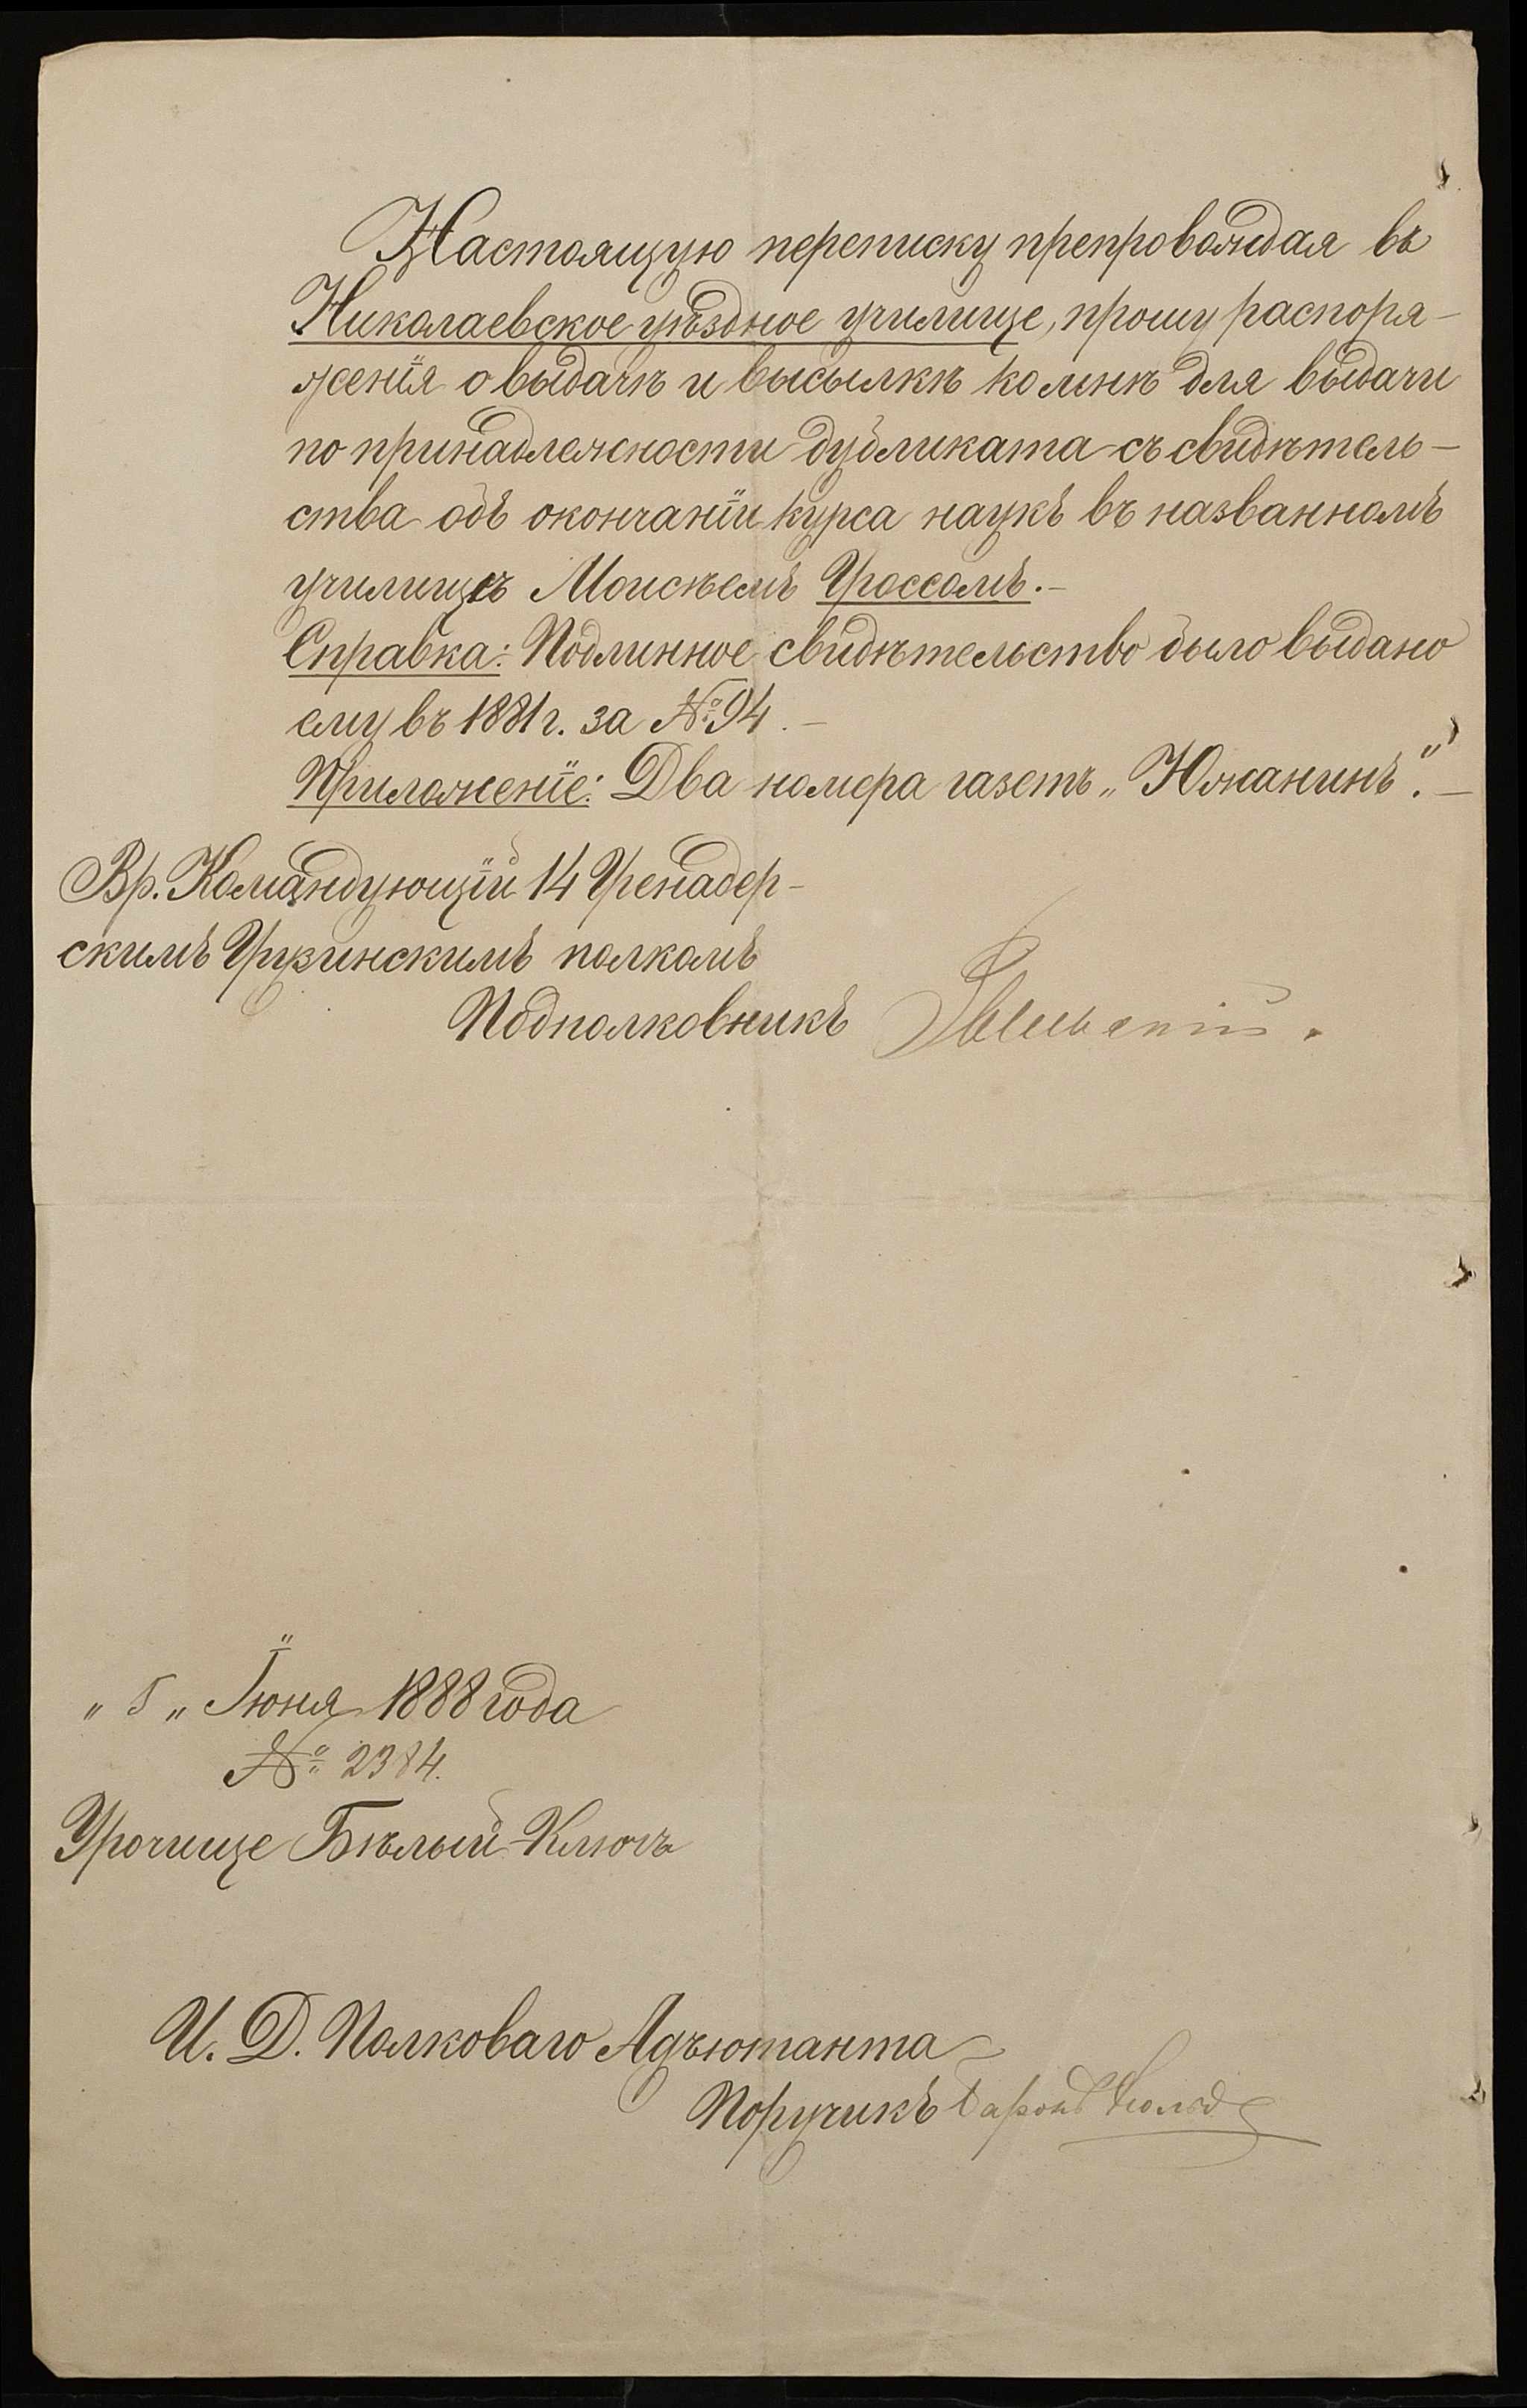 Настоящую переписку препровождая въ
Николаевское уѣздное училище, прошу распоря-
женія о выдачѣ и высылкѣ ко мнѣ для выдачи
по принадлежности дубликата съ свидѣтель-
ства объ окончаніи курса наукъ въ названномъ
училищѣ Моисѣемъ Гроссомъ.-
Справка: Подлинное свидѣтельство было выдано
ему въ 1881 г. за № 94.-
Приложеніе: Два номера газетъ „Южанинъ".-
Вр. Командующій 14 Гренадер-
скимъ Грузинскимъ полкомъ
Подполковникъ
„5„ Іюня 1888 года
№ 2384.
Урочище Бѣлый-Ключъ
И. Д. Полковаго Адъютанта
Поручикъ Баронъ